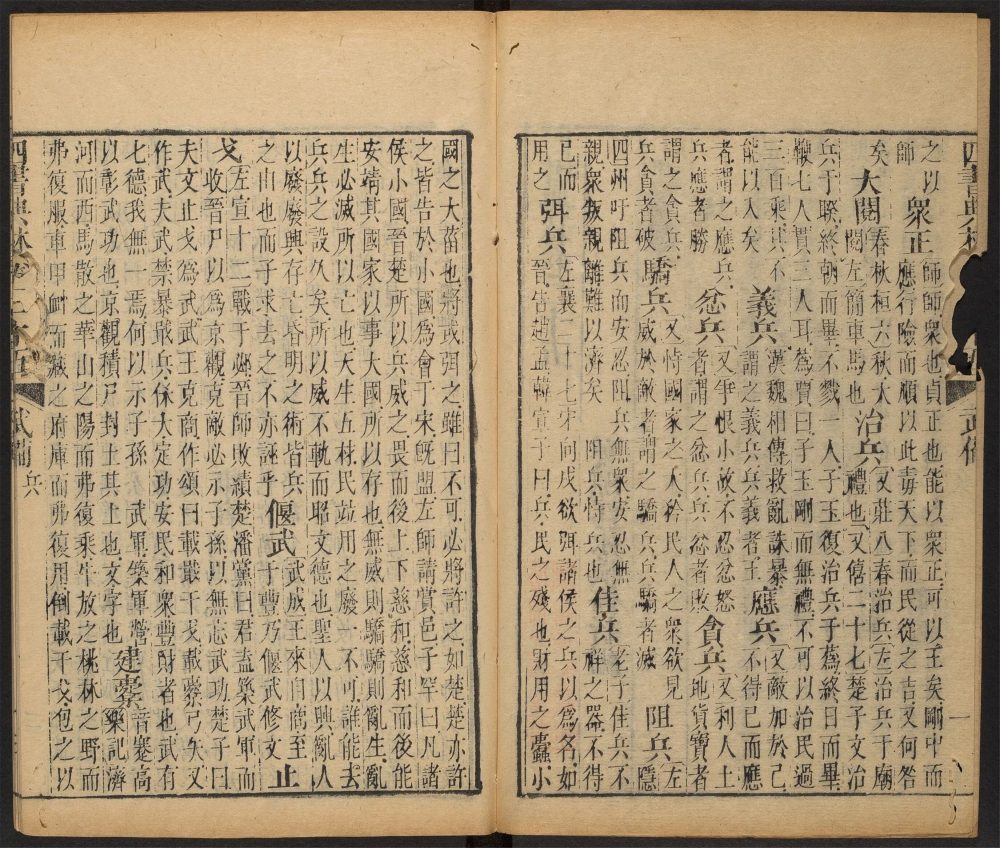 之以
衆正師師衆也貞正也能以衆正可以王矣剛中而
應行險而順以此毒天下而民從之吉又何咎
矣大閱春秋桓六秋大
閱左簡車馬也治兵又莊八春治兵左治兵于廟
禮也又僖二十七楚子文治
兵于睽終朝而畢不戮一人子玉復治兵于蔿終日而畢
鞭七人貫三人耳蔿賈曰子玉剛而無禮不可以治民過
三百乘其不
能以入矣義兵漢魏相傳救亂誅暴
謂之義兵兵義者王應兵又敵加於己
不得已而應
者謂之應兵
兵應者勝忿兵又爭恨小故不忍忿怒
者謂之忿兵兵忿者敗貪兵又利人土
地貨寶者
謂之貪兵
兵貪者破驕兵又恃國家之大矜民人之衆欲見
威於敵者謂之驕兵兵驕者滅阻兵左
隱
四州吁阻兵而安忍阻兵無衆安忍無
親衆叛親離難以濟矣 阻兵恃兵也佳兵老子佳兵不
祥之器不得
已而
用之弭兵左襄二十七宋向戌欲弭諸侯之兵以為名如
晉告趙孟韓宣子曰兵民之殘也財用之蠹小
國之大菑也將或弭之雖曰不可必將許之如楚楚亦許
之皆告於小國為會于宋既盟左師請賞邑子罕曰凡諸
侯小國晉楚所以兵威之畏而後上下慈和慈和而後能
安靖其國家以事大國所以存也無威則驕驕則亂生亂
生必滅所以亡也天生五材民並用之廢一不可誰能去
兵兵之設久矣所以威不軌而昭文德也聖人以興亂人
以廢廢興存亡昏明之術皆兵
之由也而子求去之不亦誣乎偃武武成王來自商至
于豐乃偃武修文止
戈左宣十二戰于邲晉師敗績楚潘黨曰君盍築武軍而
收晉尸以為京觀克敵必示子孫以無忘武功楚子曰
夫文止戈為武武王克商作頌曰載戢干戈載櫜弓矢又
作武夫武禁暴戢兵保大定功安民和衆豐財者也武有
七德我無一焉何以示子孫 武軍築軍營
以彰武功也京觀積尸封土其上也文字也建櫜音蹇高
樂記濟
河而西馬散之華山之陽而弗復乘牛放之桃林之野而
弗復服車甲衅而藏之府庫而弗復用倒載干戈包之以
武備 兵